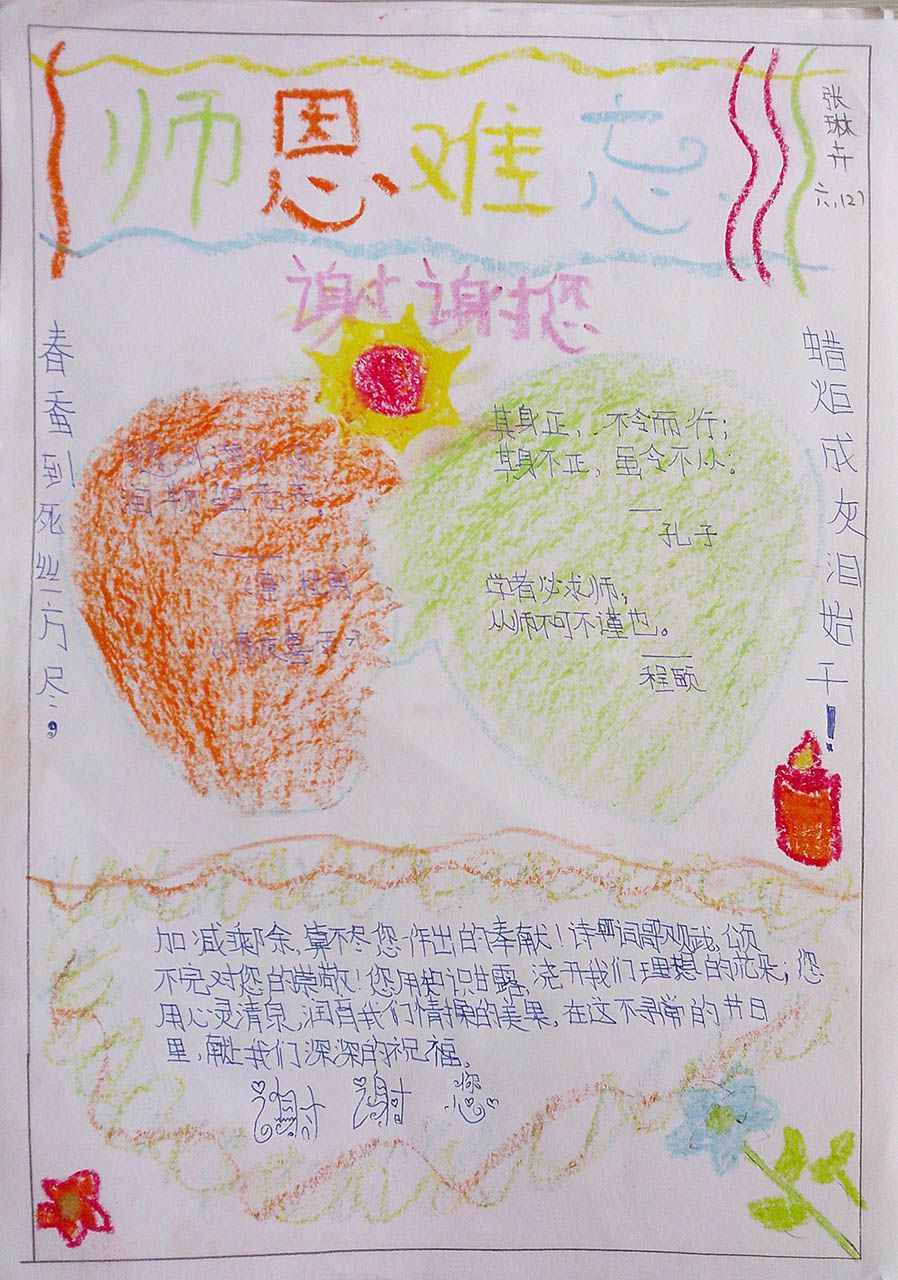 师恩难忘
张琳卉
六.(2)
谢谢您
春蚕到死丝方尽，
蜡炬成灰泪始干！
随风潜入夜
润物细无声。
——
(唐)杜甫
其身正，不令而行；
其身不正，虽令不从。
——
孔子
学者必求师，
从师不可不谨也。
——
程颐
加减乘除，算不尽您作出的奉献！诗词歌赋，颂
不完对您的崇敬！您用知识甘露，浇开我们理想的花朵；您
用心灵清泉，润育我们情操的美果，在这不寻常的节日
里，献上我们深深的祝福。
谢谢您